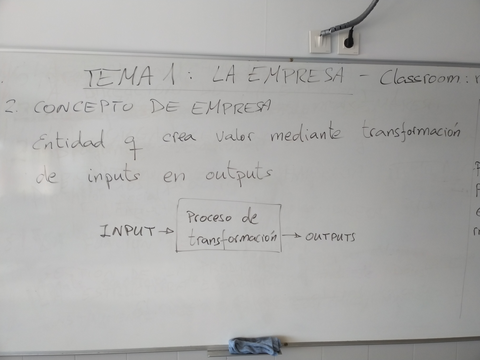 TEMA 1: LA EMPRESA - Classroom:
2. CONCEPTO DE EMPRESA
Entidad q crea valor mediante transformación
de inputs en outputs
INPUT → Proceso de
transformación → OUTPUTS